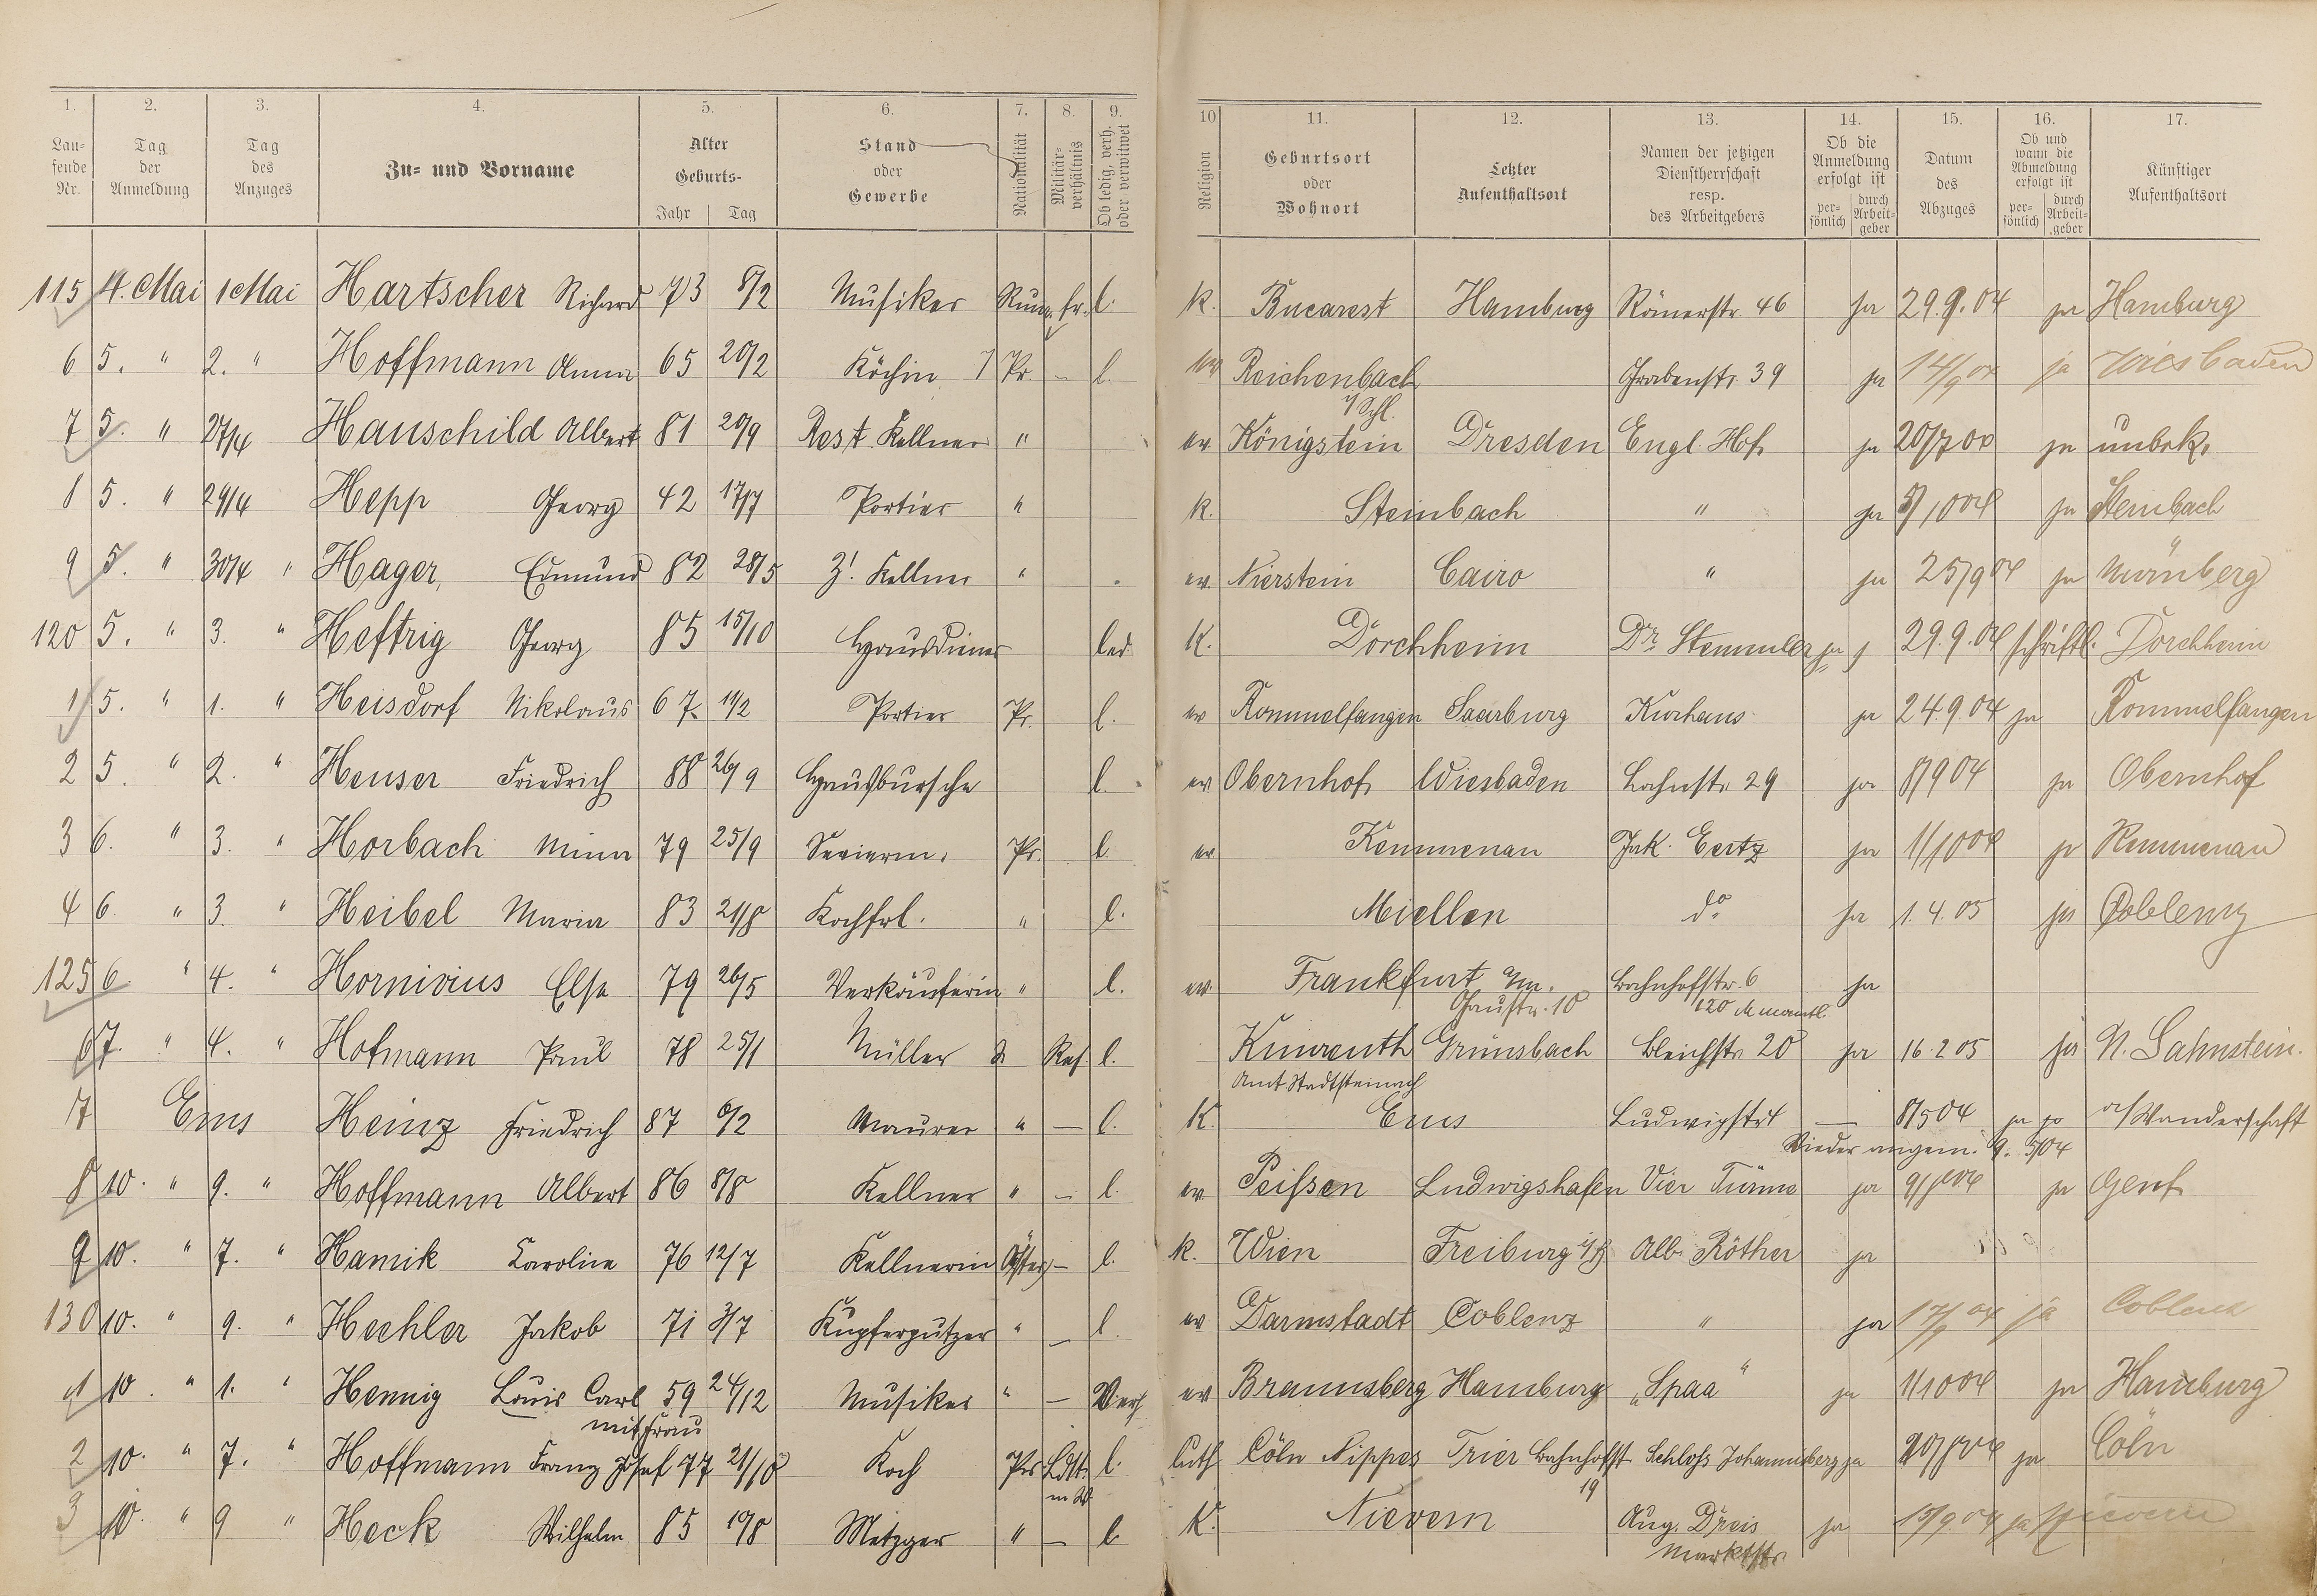 1. 2. 3. 4. 5. 6. 7. 8. 9. 10 11. 12. 13. 14. 15. 16. 17.
Lau-fende Nr. Tag der Anmeldung Tag des Anzuges Zu- und Vorname Alter Geburts- Jahr Tag Stand oder Gewerbe Nationalität Militär-verhältnis Ob ledig, verh. oder verwitwet Religion Geburtsort oder Wohnort Letzter Aufenthaltsort Namen der jetzigen Dienstherrschaft resp. des Arbeitgebers Ob die Anmeldung erfolgt ist per-sönlich durch Arbeit-geber Datum des Abzuges Ob und wann die Abmeldung erfolgt ist per-sönlich durch Arbeit-geber Künftiger Aufenthaltsort
115 4. Mai 1 Mai Hartscher Richard 73 8/2 Musiker Rum. l. K. Bucarest Hamburg Römerstr. 46 ja 29.9.04 ja Hamburg
6 5. " 2. " Hoffmann Anna 65 20/2 Köchin Pr. – l. Reichenbach Grabenstr. 39 ja 14/9 04 ja Wiesbaden
i/Schl.
7 5. " 27/4 Hauschild Albert 81 20/9 Rest. Kellner " ev Königstein Dresden Engl. Hof ja ja unbek.
8 5. " 29/4 Hepp Georg 42 17/7 Portier " K. Steinbach " ja 5/10 04 ja Steinbach
9 5. " 30/4 " Hager, Edmund 82 28/5 Z! Kellner " ev. Nierstein Cairo " ja 25/9 04 ja Nürnberg
120 5. " 3. " Heftrig Georg 85 15/10 Hausdiener led. K. Dorchheim Dr. Stemmler ja 29.9.04 schriftl. Dorchheim
1 5. " 1. " Heisdorf Nikolaus 67 Portier Pr. l. ev Kommelfangen Saarburg Kurhaus ja 24.9.04 ja Kommelfangen
2 5. " 2. " Heuser Friedrich 88 26/9 Hausbursche l. ev Obernhof Wiesbaden Lahnstr. 29 ja 8/9 04 ja Obernhof
3 6. " 3. " Horbach Mina 79 25/9 Servierm. Pr. l. ev Kemmenau Jak. Eertz ja 1/10 04 ja Kemmenau
4 6. " 3. " Heibel Maria 83 21/8 Kochfrl. " l. Miellen do ja 1.4.05 ja Coblenz
125 6. " 4. " Hornivius Elsa 79 26/5 Verkäuferin " l. ev. Frankfurt a/m. Bahnhofstr. 6 ja
Gaustr. 10 120 M monatl.
6 7. " 4. " Hofmann Paul 78 25/1 Müller l. Kunreuth Grünsbach Bleichstr. 20 ja 16.2 05 ja N. Lahnstein.
Amt Stadtsteinach
7 Ems Heinz Friedrich 87 6/2 Maurer " – l. K. Ems Ludwigstr – 8/5 04 ja a/ Wanderschaft
Wieder angem. 9. 5/04
8 10. " 9. " Hoffmann Albert 86 8/8 Kellner " – l. ev Peissen Ludwigshafen Vier Türme ja ja Genf
9 10. " 7. " Hamik Karoline 76 12/7 Kellnerin Öster. – l. K. Wien Freiburg i/B Alb. Röther ja
130 10. " 9. " Hechler Jakob 71 3/7 Kupferputzer " – l. ev Darmstadt Coblenz " ja 17/9 04 ja Coblenz
1 10. " 1. " Hennig Louis Carl 59 24/12 Musiker " – Verh ev Braunsberg Hamburg „Spaa" ja 1/10 04 ja Hamburg
mit Frau
2 10. " 7. " Hoffmann Franz Josef 77 21/10 Koch Prs Ldst. l. luth Cöln Nippes Trier Bahnhofst. Schloss Johannisberg ja ja Cöln
m W 19
3 10. " 9 " Heck Wilhelm 85 Metzger " – l. K. Nievern Aug. Dreis ja 15/9 04 ja Nievern
Marktstr.